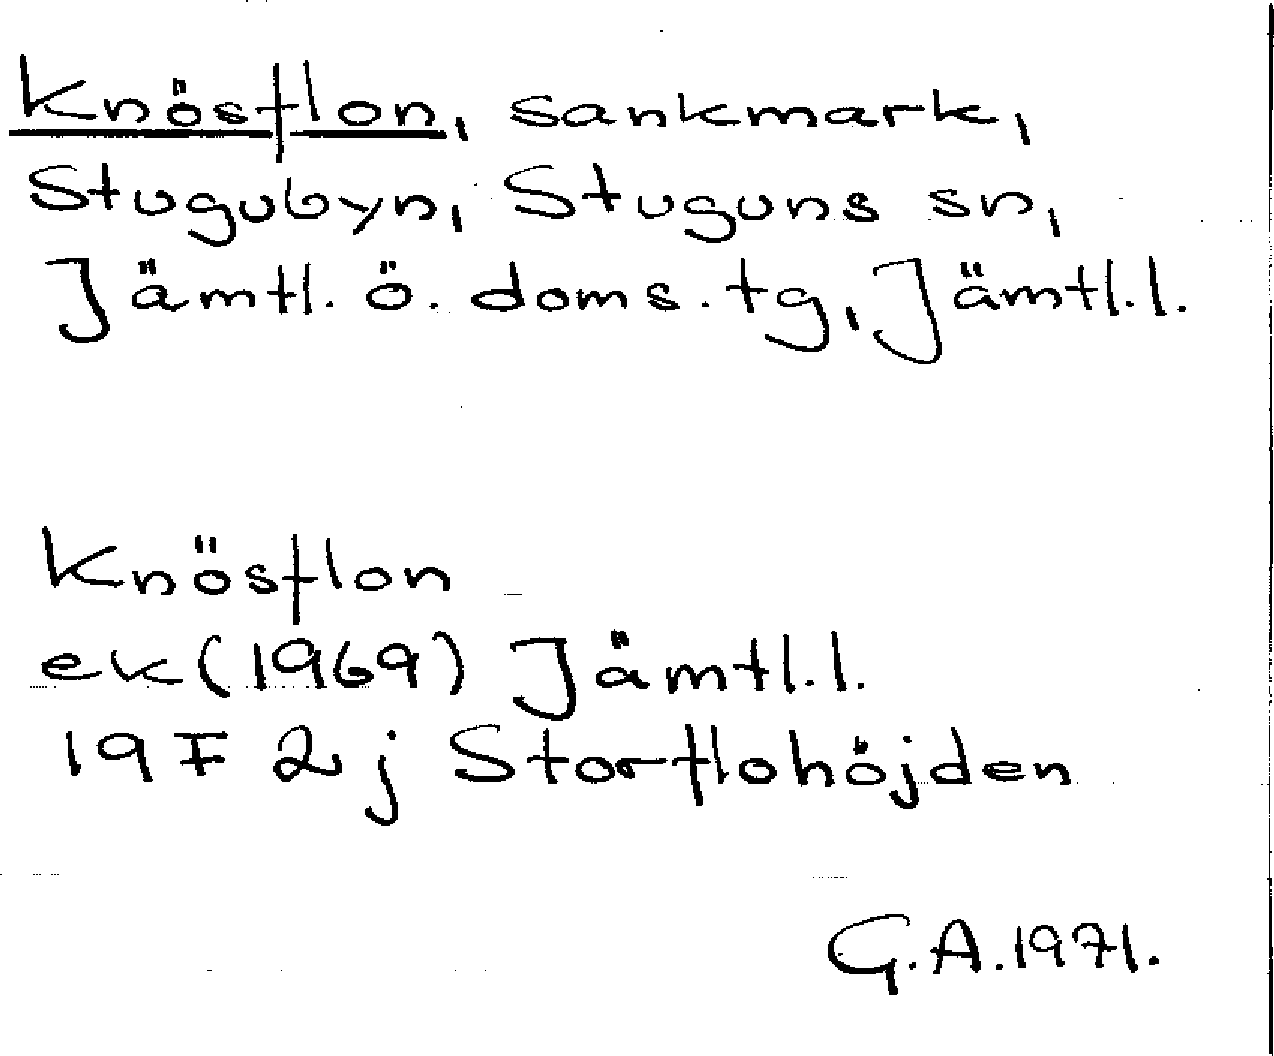 Knösflon, sankmark,
Stugubyn, Stuguns sn,
Jämtl. ö. doms. tg, Jämtl. l.
Knösflon
ek (1969) Jämtl. l.
19F 2j Storflohöjden
G.A. 1971.